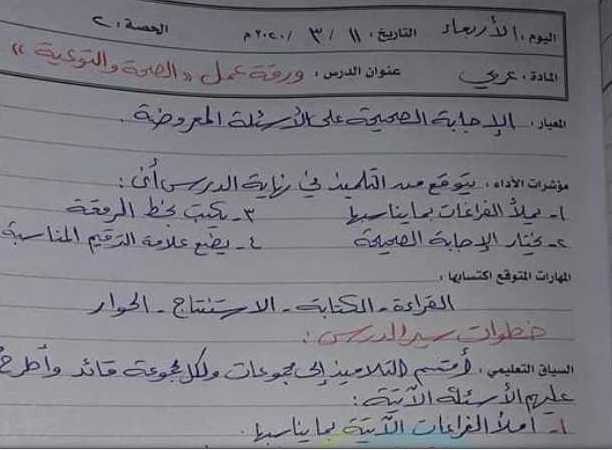 اليوم: الأربعاء التاريخ: ١١ / ٣ / ٢٠٢٠م الحصة: ٢
المادة: عربي عنوان الدرس: ورقة عمل « الصحة والتوعية »
المعيار: الإجابة الصحيحة على الأسئلة المعروضة.
مؤشرات الأداء: يتوقع من التلميذ في نهاية الدرس أن:
١- يملأ الفراغات بما يناسبها ٣- يكتب بخط الرقعة
٢- يختار الإجابة الصحيحة ٤- يضع علامة الترقيم المناسبة
المهارات المتوقع اكتسابها:
القراءة - الكتابة - الاستنتاج - الحوار
خطوات سير الدرس:
السياق التعليمي: أقسم التلاميذ إلى مجموعات ولكل مجموعة قائد وأطرح
عليهم الأسئلة الآتية:
١- املأ الفراغات الآتية بما يناسبها.